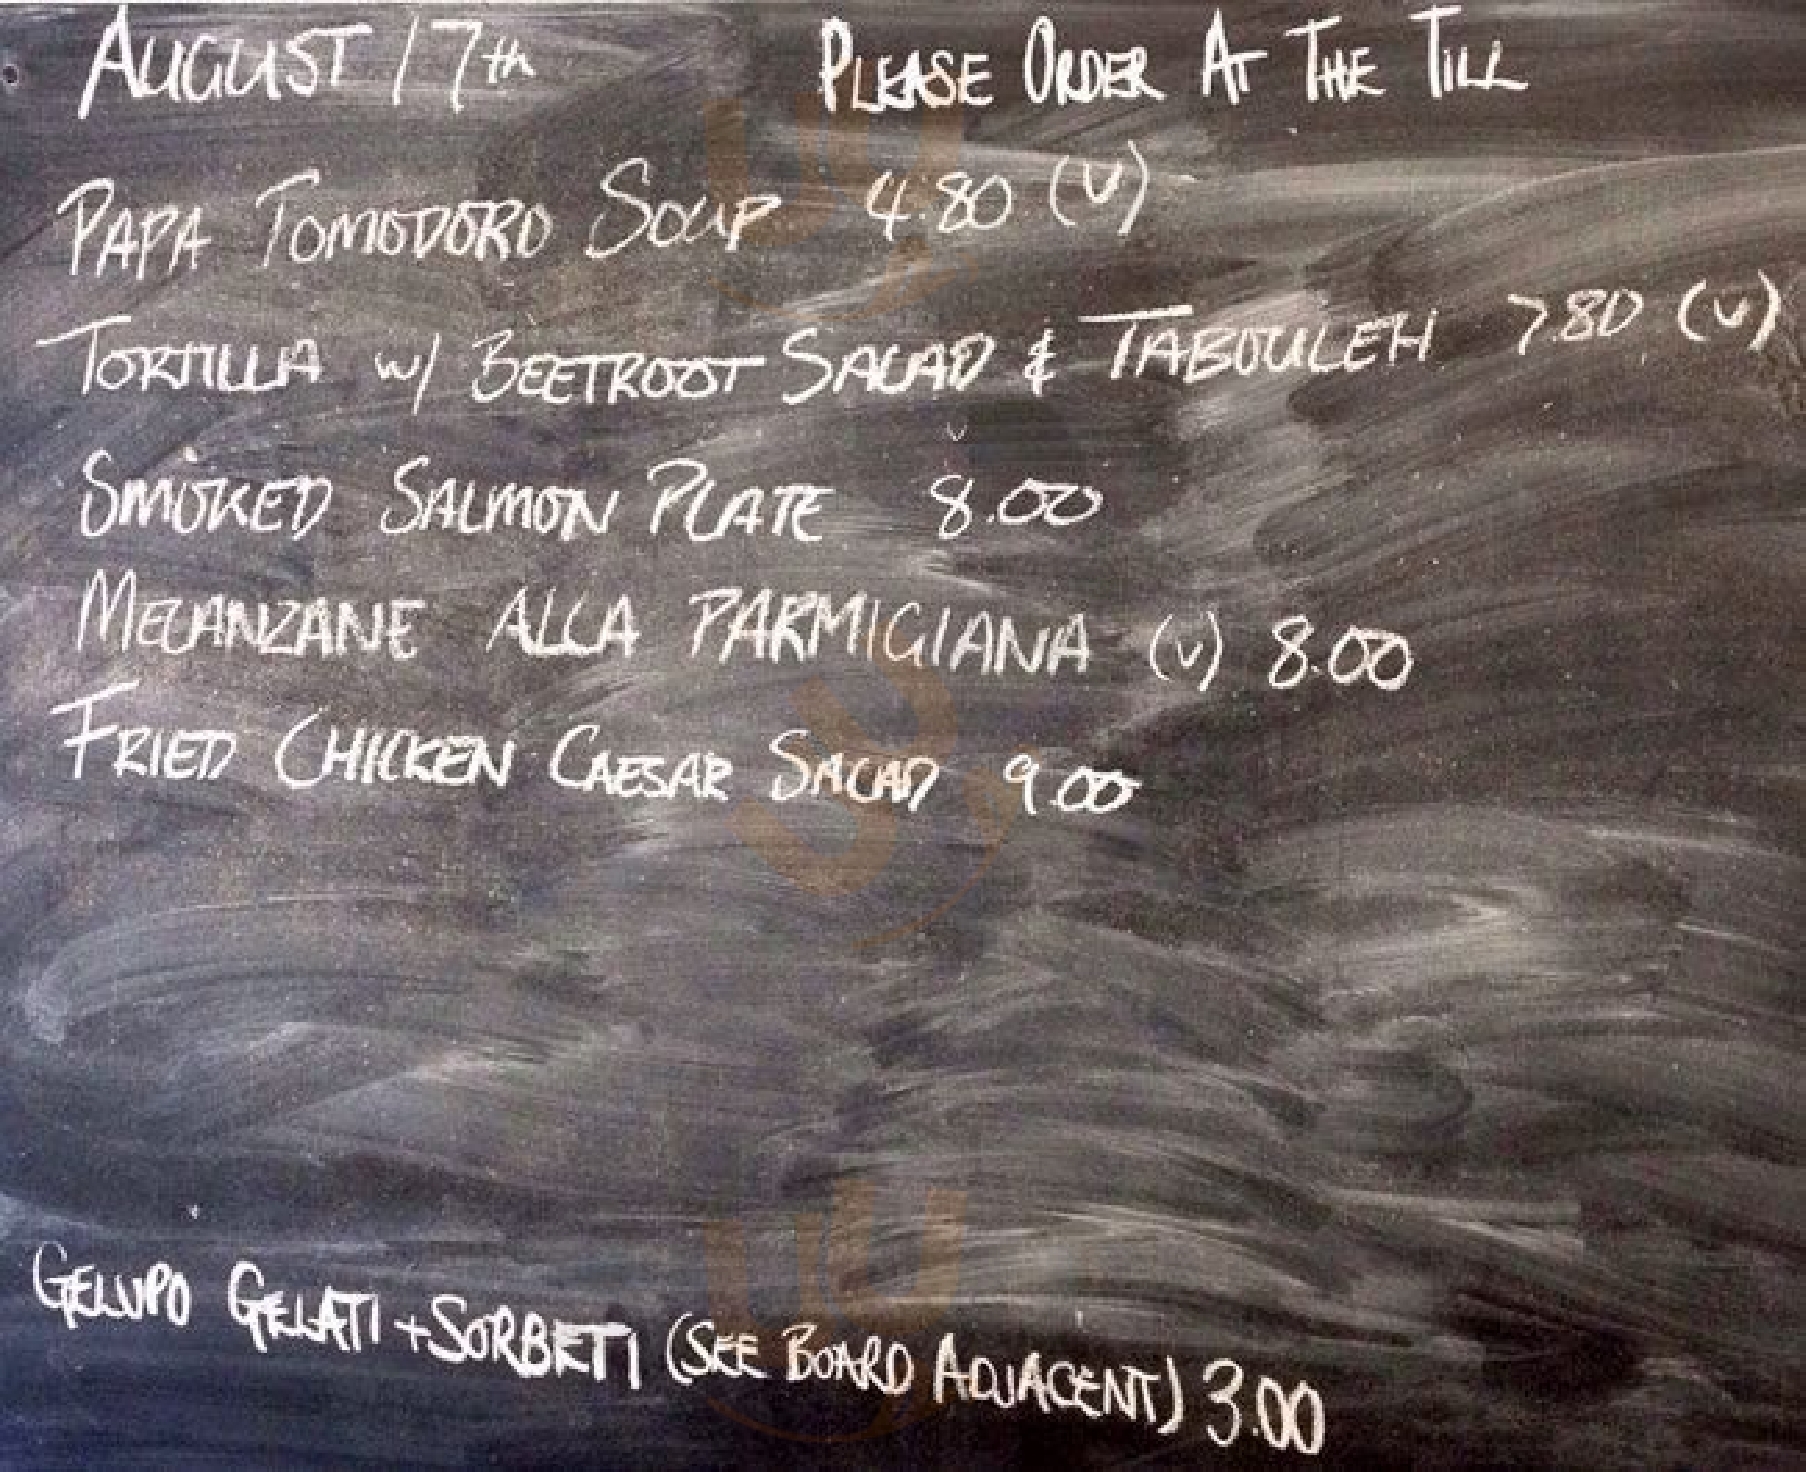 AUGUST 17th PLEASE ORDER AT THE TILL
PAPA TOMODORO SOUP 4.80 (V)
TORTILLA W/ BEETROOT SALAD & TABOULEH 7.80 (V)
SMOKED SALMON PLATE 8.00
MELANZANE ALLA PARMIGIANA (V) 8.00
FRIED CHICKEN CAESAR SALAD 9.00
GELUPO GELATI + SORBETI (SEE BOARD ADJACENT) 3.00